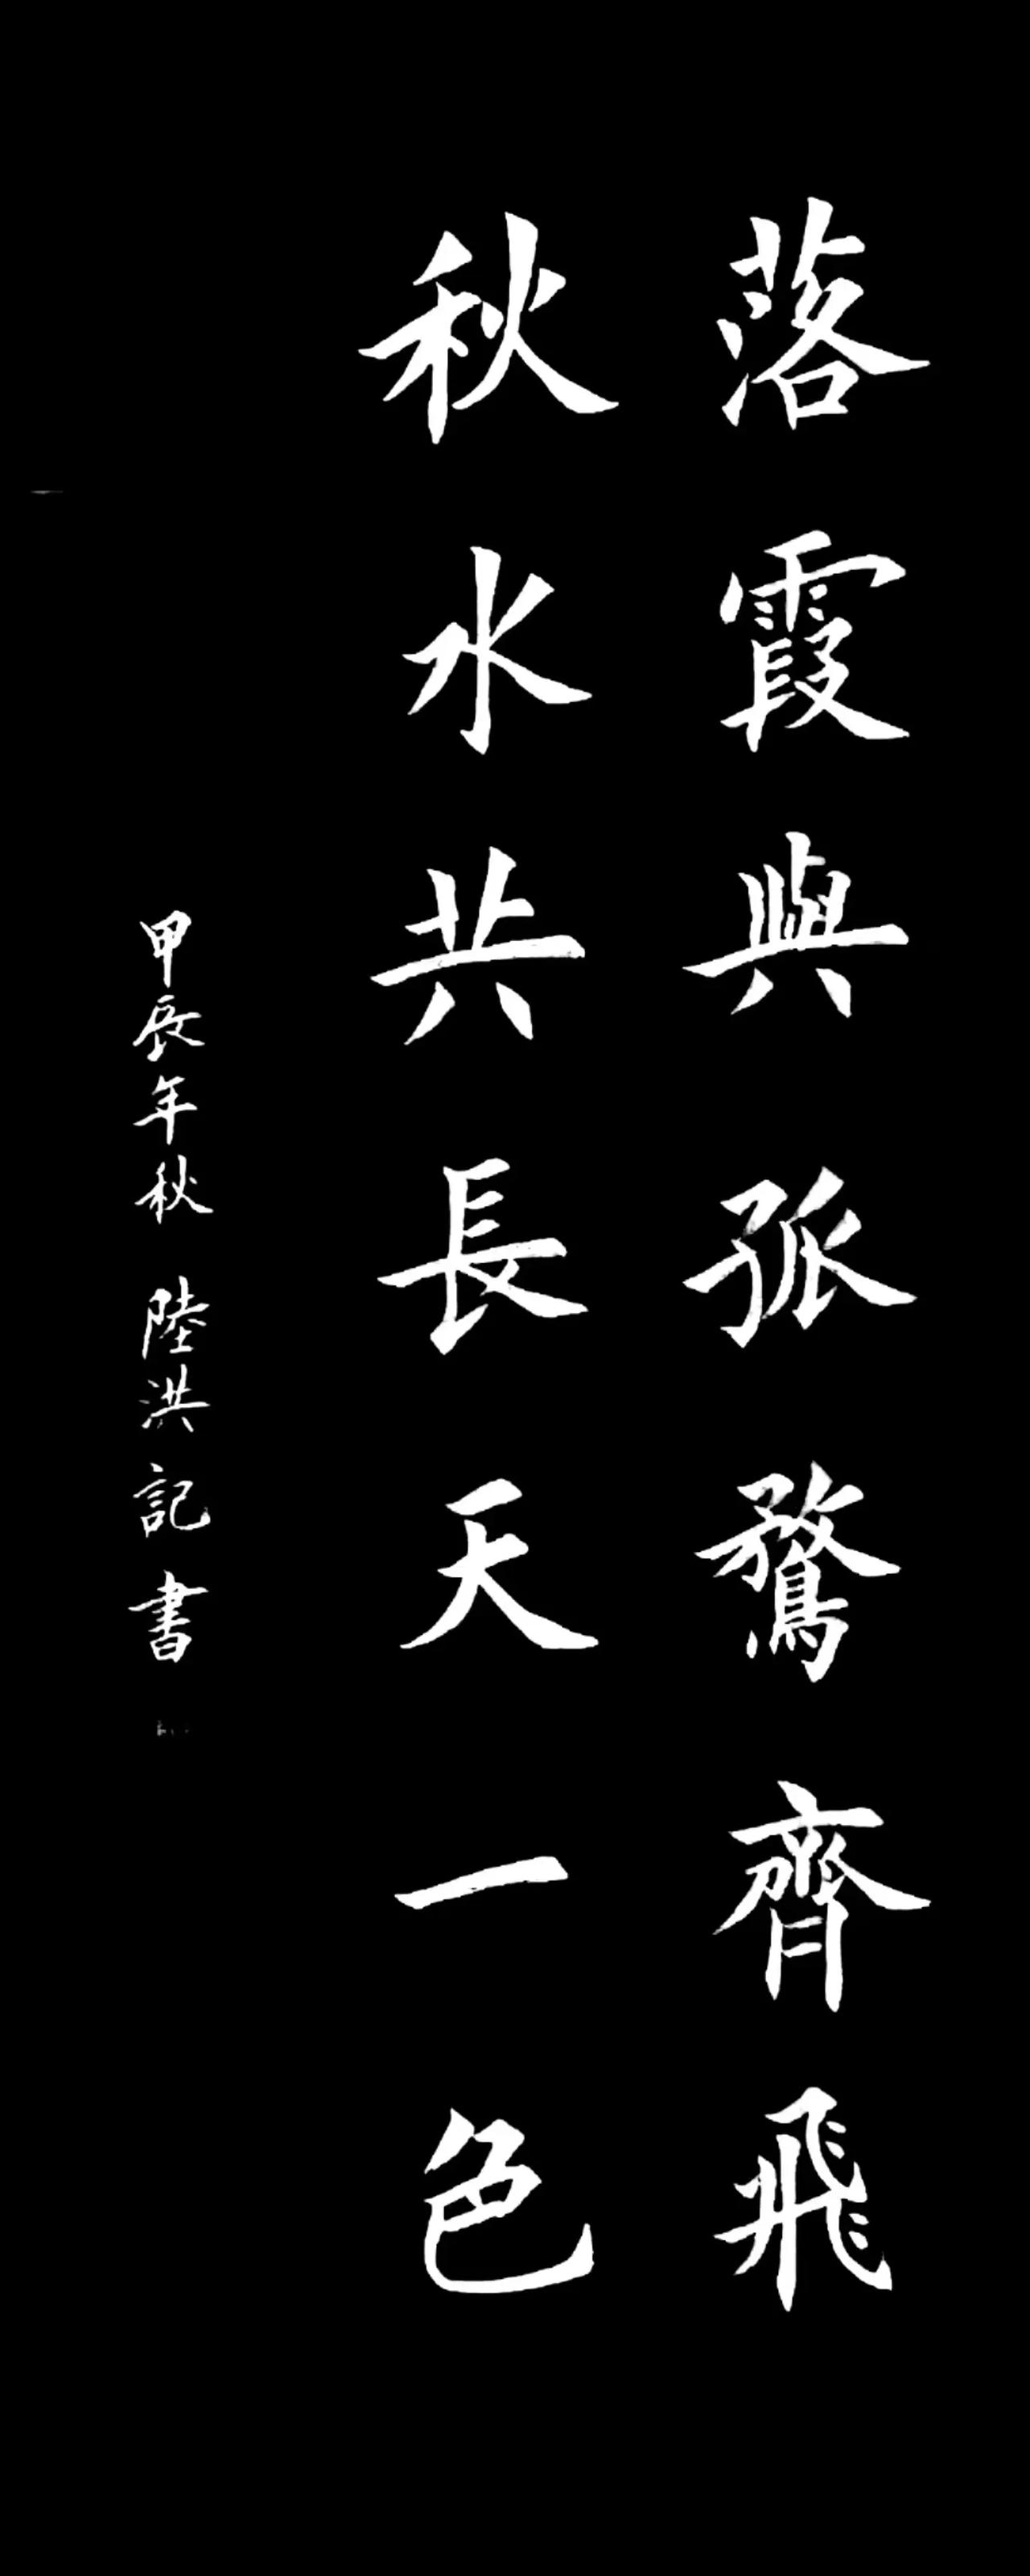 落霞與孤鶩齊飛
秋水共長天一色
甲辰年秋 陸洪記書